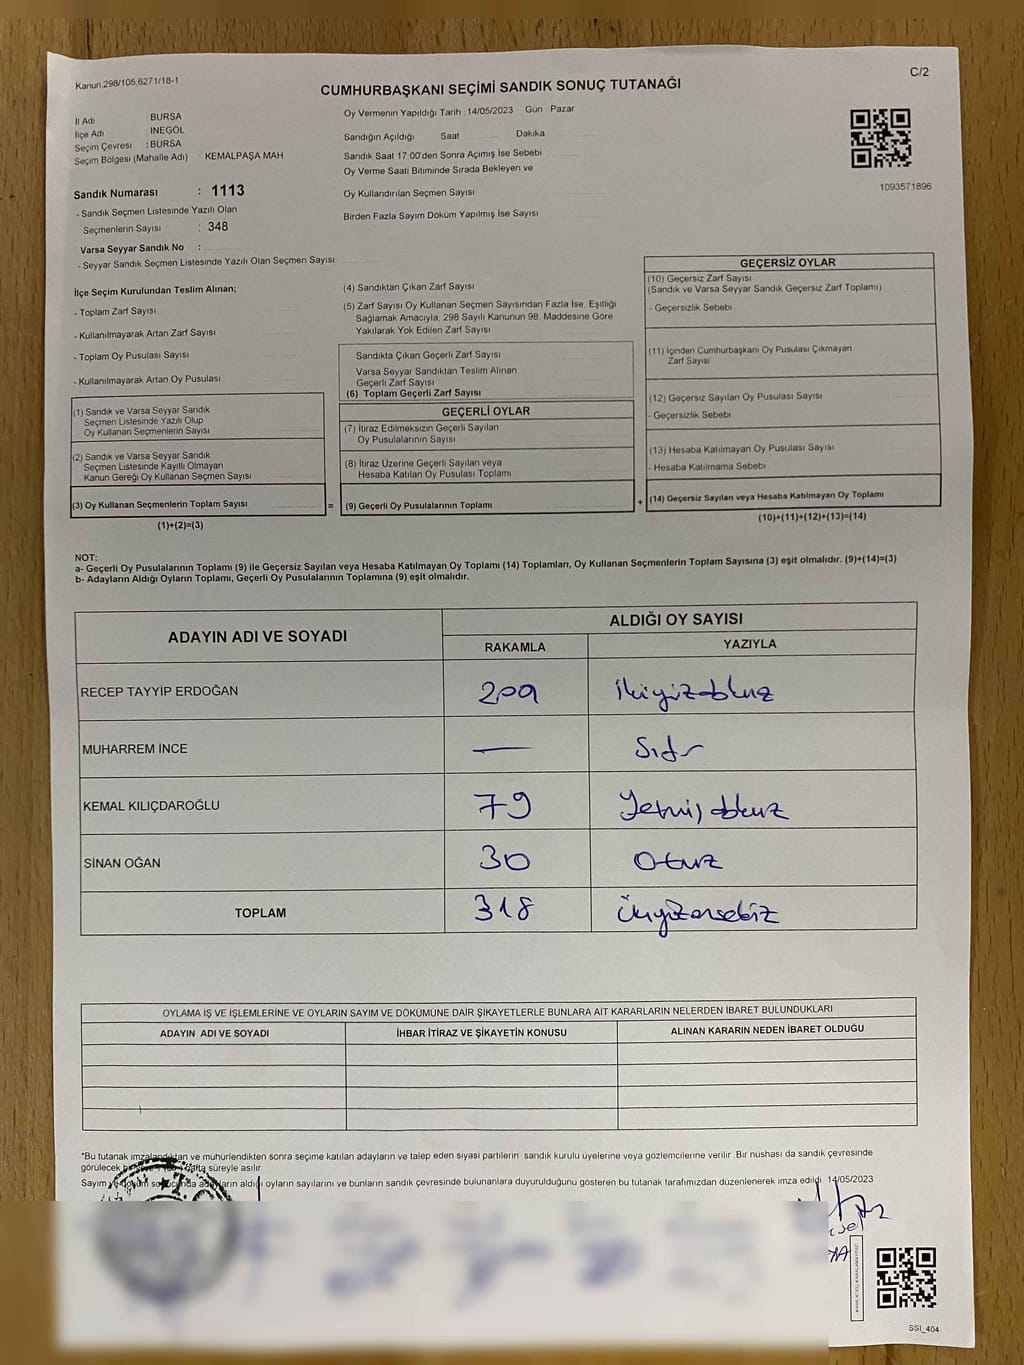 Kanun.298/105,6271/18-1
C/2
CUMHURBAŞKANI SEÇİMİ SANDIK SONUÇ TUTANAĞI
İl Adı : BURSA
İlçe Adı İNEGÖL
Seçim Çevresi : BURSA
Seçim Bölgesi (Mahalle Adı) KEMALPAŞA MAH
Sandık Numarası : 1113
- Sandık Seçmen Listesinde Yazılı Olan
Seçmenlerin Sayısı : 348
Varsa Seyyar Sandık No :
- Seyyar Sandık Seçmen Listesinde Yazılı Olan Seçmen Sayısı:
Oy Vermenin Yapıldığı Tarih : 14/05/2023 Gün : Pazar
Sandığın Açıldığı Saat Dakika
Sandık Saat 17:00'den Sonra Açımış İse Sebebi
Oy Verme Saati Bitiminde Sırada Bekleyen ve
Oy Kullandırılan Seçmen Sayısı
Birden Fazla Sayım Döküm Yapılmış İse Sayısı
1093571896
İlçe Seçim Kurulundan Teslim Alınan;
- Toplam Zarf Sayısı
- Kullanılmayarak Artan Zarf Sayısı
- Toplam Oy Pusulası Sayısı
- Kullanılmayarak Artan Oy Pusulası
(1) Sandık ve Varsa Seyyar Sandık
Seçmen Listesinde Yazılı Olup
Oy Kullanan Seçmenlerin Sayısı
(2) Sandık ve Varsa Seyyar Sandık
Seçmen Listesinde Kayıtlı Olmayan
Kanun Gereği Oy Kullanan Seçmen Sayısı
(3) Oy Kullanan Seçmenlerin Toplam Sayısı =
(1)+(2)=(3)
(4) Sandıktan Çıkan Zarf Sayısı
(5) Zarf Sayısı Oy Kullanan Seçmen Sayısından Fazla İse, Eşitliği
Sağlamak Amacıyla, 298 Sayılı Kanunun 98. Maddesine Göre
Yakılarak Yok Edilen Zarf Sayısı
Sandıkta Çıkan Geçerli Zarf Sayısı
Varsa Seyyar Sandıktan Teslim Alınan
Geçerli Zarf Sayısı
(6) Toplam Geçerli Zarf Sayısı
GEÇERLİ OYLAR
(7) İtiraz Edilmeksizin Geçerli Sayılan
Oy Pusulalarının Sayısı
(8) İtiraz Üzerine Geçerli Sayılan veya
Hesaba Katılan Oy Pusulası Toplamı
(9) Geçerli Oy Pusulalarının Toplamı +
GEÇERSİZ OYLAR
(10) Geçersiz Zarf Sayısı
(Sandık ve Varsa Seyyar Sandık Geçersiz Zarf Toplamı)
- Geçersizlik Sebebi
(11) İçinden Cumhurbaşkanı Oy Pusulası Çıkmayan
Zarf Sayısı
(12) Geçersiz Sayılan Oy Pusulası Sayısı
- Geçersizlik Sebebi
(13) Hesaba Katılmayan Oy Pusulası Sayısı
- Hesaba Katılmama Sebebi
(14) Geçersiz Sayılan veya Hesaba Katılmayan Oy Toplamı
(10)+(11)+(12)+(13)=(14)
NOT:
a- Geçerli Oy Pusulalarının Toplamı (9) ile Geçersiz Sayılan veya Hesaba Katılmayan Oy Toplamı (14) Toplamları, Oy Kullanan Seçmenlerin Toplam Sayısına (3) eşit olmalıdır. (9)+(14)=(3)
b- Adayların Aldığı Oyların Toplamı, Geçerli Oy Pusulalarının Toplamına (9) eşit olmalıdır.
ADAYIN ADI VE SOYADI ALDIĞI OY SAYISI
RAKAMLA YAZIYLA
RECEP TAYYİP ERDOĞAN 209 İkiyüzdokuz
MUHARREM İNCE — Sıfır
KEMAL KILIÇDAROĞLU 79 Yetmişdokuz
SİNAN OĞAN 30 Otuz
TOPLAM 318 Üçyüzonsekiz
OYLAMA İŞ VE İŞLEMLERİNE VE OYLARIN SAYIM VE DÖKÜMÜNE DAİR ŞİKAYETLERLE BUNLARA AİT KARARLARIN NELERDEN İBARET BULUNDUKLARI
ADAYIN ADI VE SOYADI İHBAR İTİRAZ VE ŞİKAYETİN KONUSU ALINAN KARARIN NEDEN İBARET OLDUĞU
*Bu tutanak imzalandıktan ve mühürlendikten sonra seçime katılan adayların ve talep eden siyasi partilerin sandık kurulu üyelerine veya gözlemcilerine verilir. Bir nüshası da sandık çevresinde
görülecek süreyle asılır.
Sayım aldığı oyların sayılarını ve bunların sandık çevresinde bulunanlara duyurulduğunu gösteren bu tutanak tarafımızdan düzenlenerek imza edildi. 14/05/2023
SSİ_404